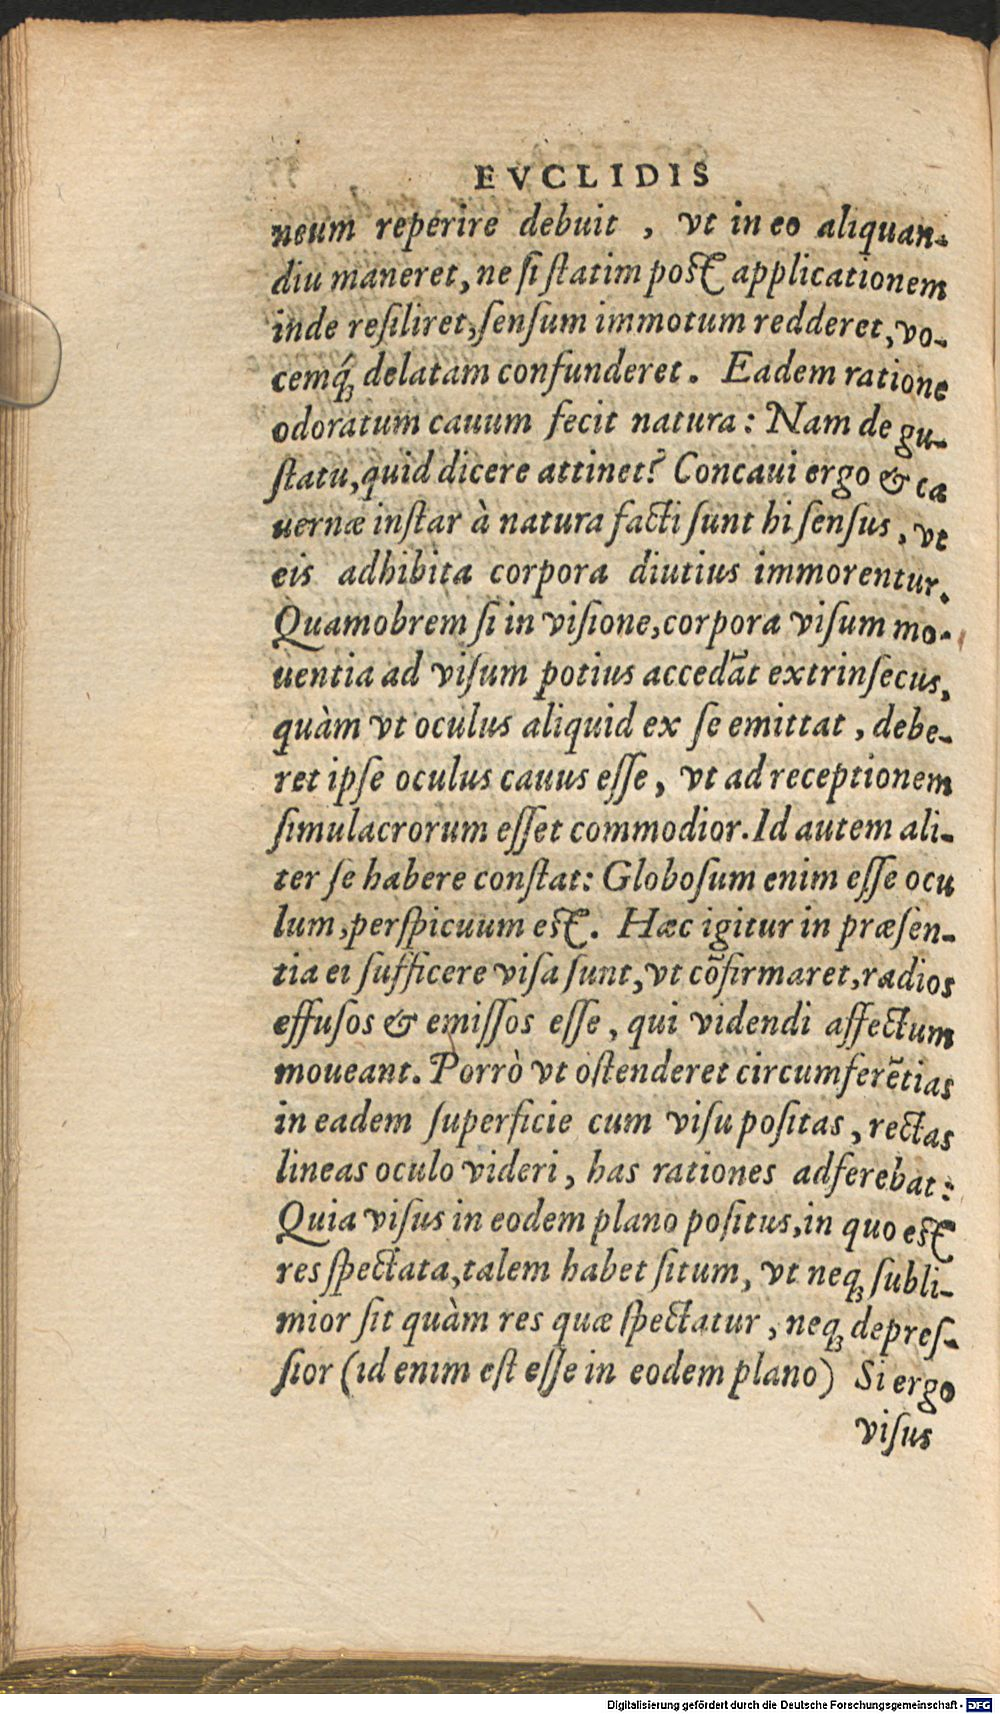 EVCLIDIS
neum reperire debuit , vt in eo aliquan-
diu maneret, ne si statim post applicationem
inde resiliret, sensum immotum redderet, vo-
cemq́; delatam confunderet. Eadem ratione
odoratum cauum fecit natura: Nam de gu-
statu, quid dicere attinet? Concaui ergo & ca
uernæ instar à natura facti sunt hi sensus, vt
eis adhibita corpora diutius immorentur.
Quamobrem si in visione, corpora visum mo-
uentia ad visum potius accedãt extrinsecus,
quàm vt oculus aliquid ex se emittat, debe-
ret ipse oculus cauus esse, vt ad receptionem
simulacrorum esset commodior. Id autem ali-
ter se habere constat: Globosum enim esse ocu
lum, perspicuum est. Hæc igitur in præsen-
tia ei sufficere visa sunt, vt cõfirmaret, radios
effusos & emissos esse, qui videndi affectum
moueant. Porrò vt ostenderet circumferẽtias
in eadem superficie cum visu positas, rectas
lineas oculo videri, has rationes adferebat:
Quia visus in eodem plano positus, in quo est
res spectata, talem habet situm, vt neq; subli-
mior sit quàm res quæ spectatur, neq; depres-
sior (id enim est esse in eodem plano) Si ergo
visus
Digitalisierung gefördert durch die Deutsche Forschungsgemeinschaft - DFG